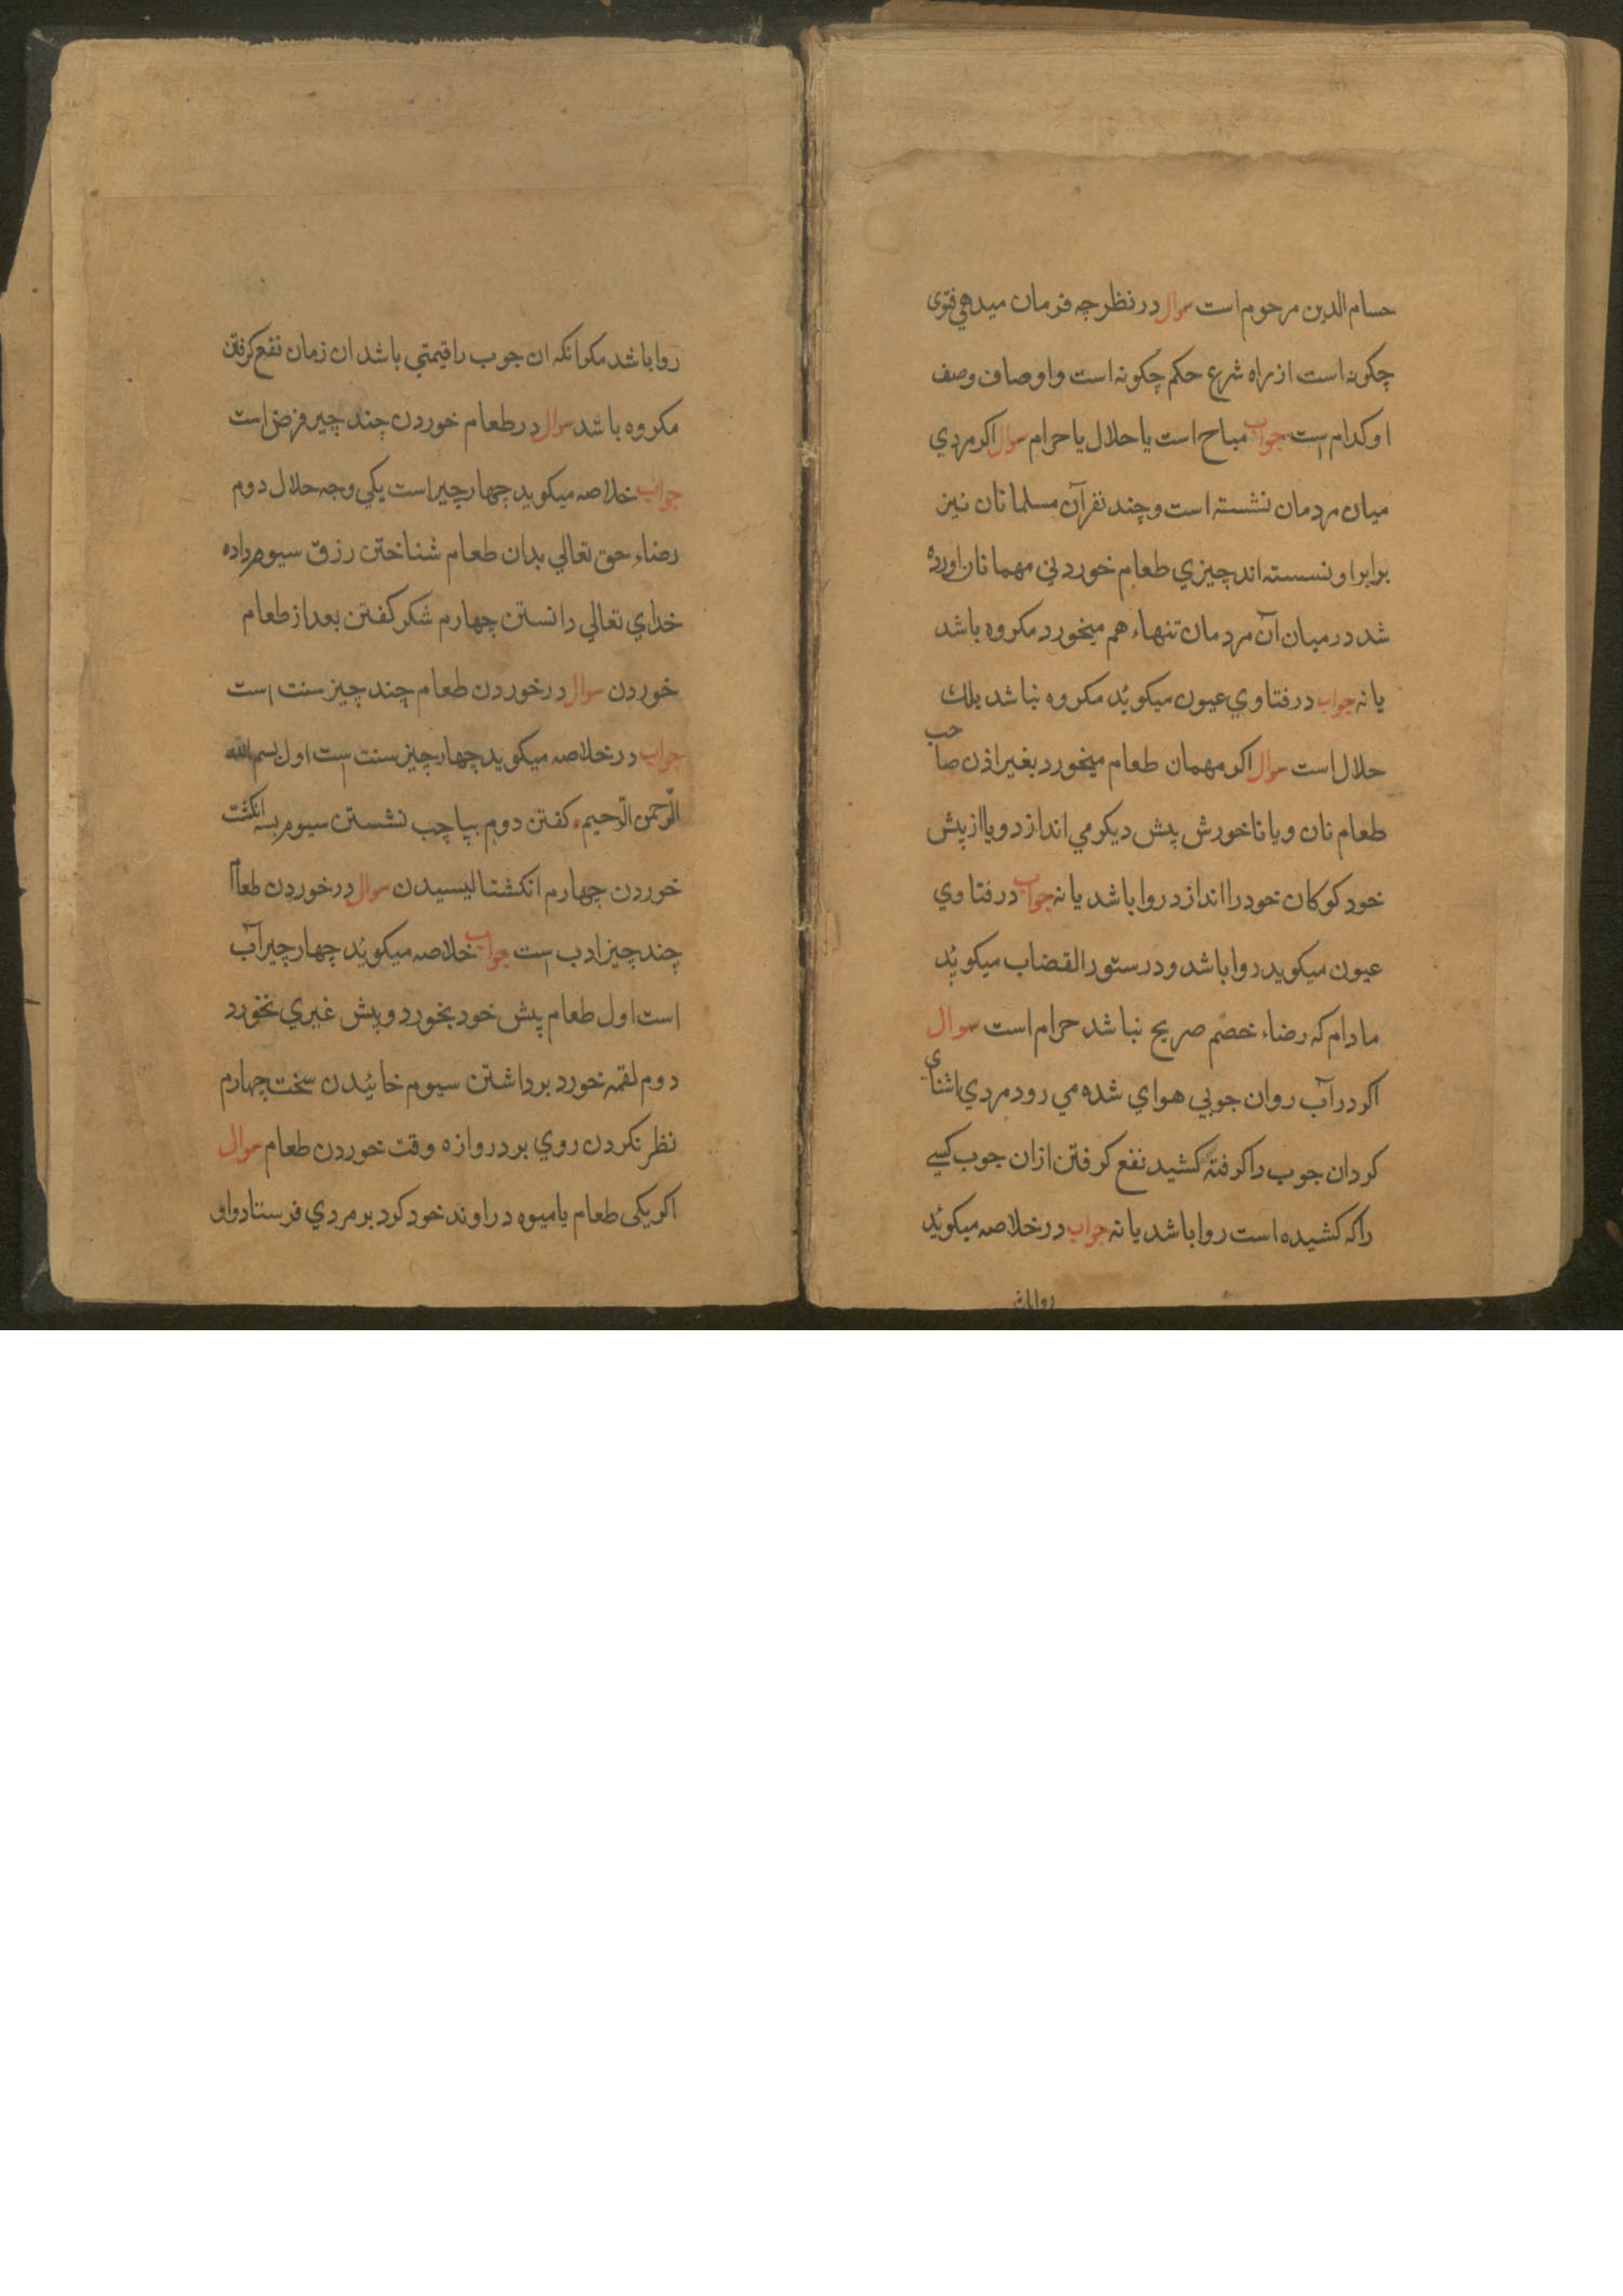 حسام الدین مرحوم است سوال در نظر چه فرمان میدهی فتوی
چکونه است از راه شرع حکم چکونه است و اوصاف وصف
او کدام است جواب مباح است یا حلال یا حرام سوال اکر مردي
میان مردمان نشسته است و چند نفر آن مسلمانان نیز
برابر او نسسته اند چیزي طعام خوردني مهمانان اورده
شد در میان آن مردمان تنهاء هم میخورد مکروه باشد
یا نه جواب در فتاوي عیون میکوئد مکروه نباشد بلك
حلال است سوال اکر مهمان طعام میخورد بغیر اذن صاحب
طعام نان و یا ناخورش پیش دیکر می اندازد و یا از پیش
خود کوکان خود را اندازد روا باشد یا نه جواب در فتاوي
عیون میکوید روا باشد و در ستور القضاب میکوئد
مادام که رضاء خصم صریح نباشد حرام است سوال
اکر در آب روان جوبي هواي شده مي رود مردي اشناي
کرد ان جوب را کرفته کشید نفع کرفتن ازان جوب کسے
را که کشیده است روا باشد یا نه جواب در خلاصه میکوئد
روا باشد
روا باشد مکر انکه ان جوب را قیمتي باشد ان زمان نفع کرفتن
مکروه باشد سوال در طعام خوردن چند چیز فرض است
جواب خلاصه میکوید چهار چیز است یکي وجه حلال دوم
رضاء حق تعالي بدان طعام شناختن رزق سیوم داده
خداي تعالي دانستن چهارم شکر کفتن بعد از طعام
خوردن سوال در خوردن طعام چند چیز سنت است
جواب در خلاصه میکوید چهار چیز سنت است اول بسم الله
الرّحمن الرّحیم کفتن دوم بپا چب نشستن سیوم بسه انکشت
خوردن چهارم انکشتا لیسیدن سوال در خوردن طعام
چند چیز ادب است جواب خلاصه میکوئد چهار چیز آب
است اول طعام پیش خود بخورد و پیش غیري نخورد
دوم لقمه خورد برداشتن سیوم خائیدن سخت چهارم
نظر نکردن روي بر دروازه وقت خوردن طعام سوال
اکر یکی طعام یا میوه در اوند خود کرد بر مردي فرستاد و او